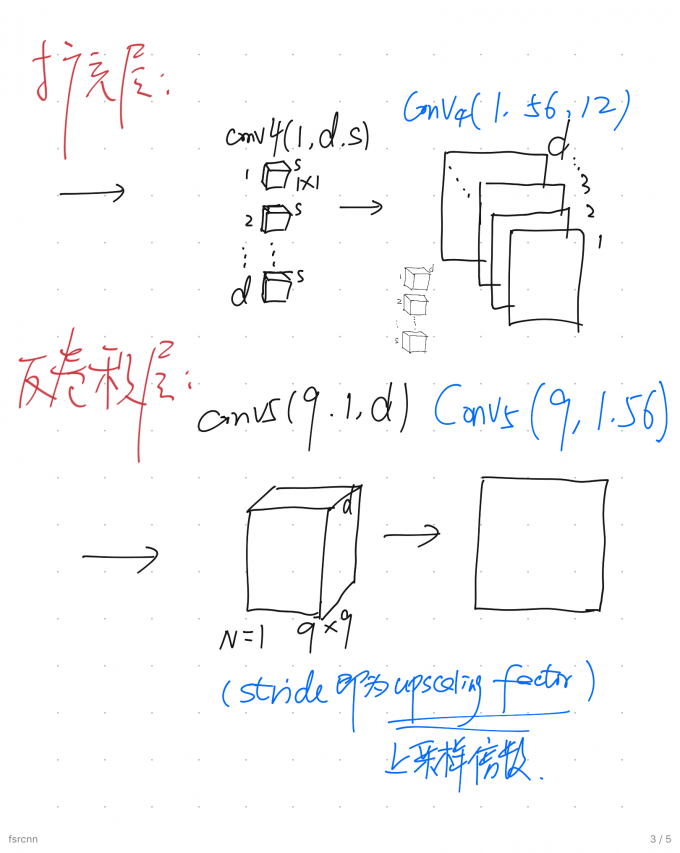 扩充层:
Conv4(1.56,12)
conv4(1,d.s)
1 s
1×1
2 s
d s
d
3
2
1
1 d
2
s
反卷积层:
conv5(9.1,d) Conv5(9,1.56)
d
N=1 9×9
(stride 即为 upscaling factor)
上采样倍数.
fsrcnn 3 / 5